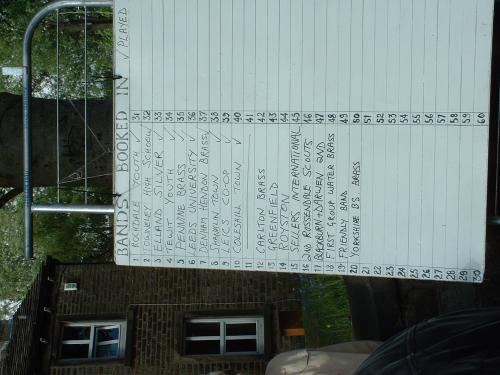 BANDS BOOKED IN √ PLAYED
1 ROCHDALE YOUTH √ 31
2 LONGLEY HIGH SCHOOL 32
3 ELLAND SILVER √ 33
4 YOUTH √ 34
5 PENNINE BRASS √ 35
6 LEEDS UNIVERSITY √ 36
7 DENHAM HENDON BRASS √ 37
8 TOWN √ 38
9 CO-OP √ 39
10 COLESHILL TOWN √ 40
11 41
12 CARLTON BRASS 42
13 GREENFIELD 43
14 ROYSTON 44
15 SELLERS INTERNATIONAL 45
16 2ND ROSSENDALE SCOUTS 46
17 BLACKBURN + DARWEN 2ND 47
18 FIRST GROUP WATER BRASS 48
19 FRIENDLY BAND 49
20 YORKSHIRE BS BRASS 50
21 51
22 52
23 53
24 54
25 55
26 56
27 57
28 58
29 59
30 60